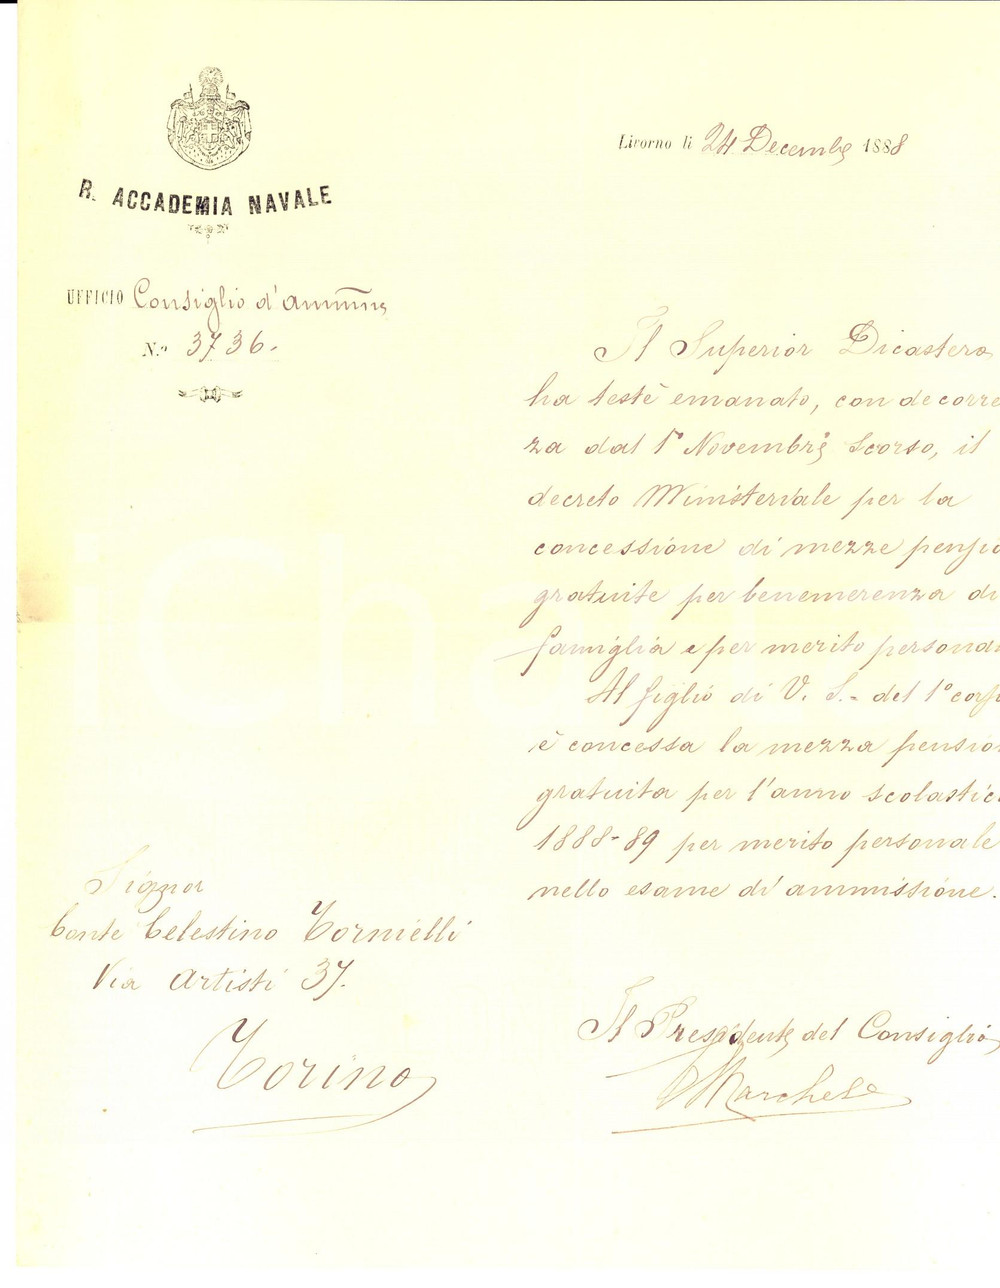 R. ACCADEMIA NAVALE
Livorno li 24 Decembre 1888
UFFICIO Consiglio d'Ammne
N.o 3736.
Il Superior Dicastero
ha testè emanato, con decorre
za dal 1º Novembre scorso, il
decreto Ministeriale per la
concessione di mezze pensio
gratuite per benemerenza di
famiglia e per merito persona
Al figlio di V. S.- del 1º corso
è concessa la mezza pensio
gratuita per l'anno scolastic
1888-89 per merito personale
nello esame di ammissione.
Signor
Conte Celestino Tornielli
Via Artisti 37.
Torino
Il Presidente del Consiglio
Marchese